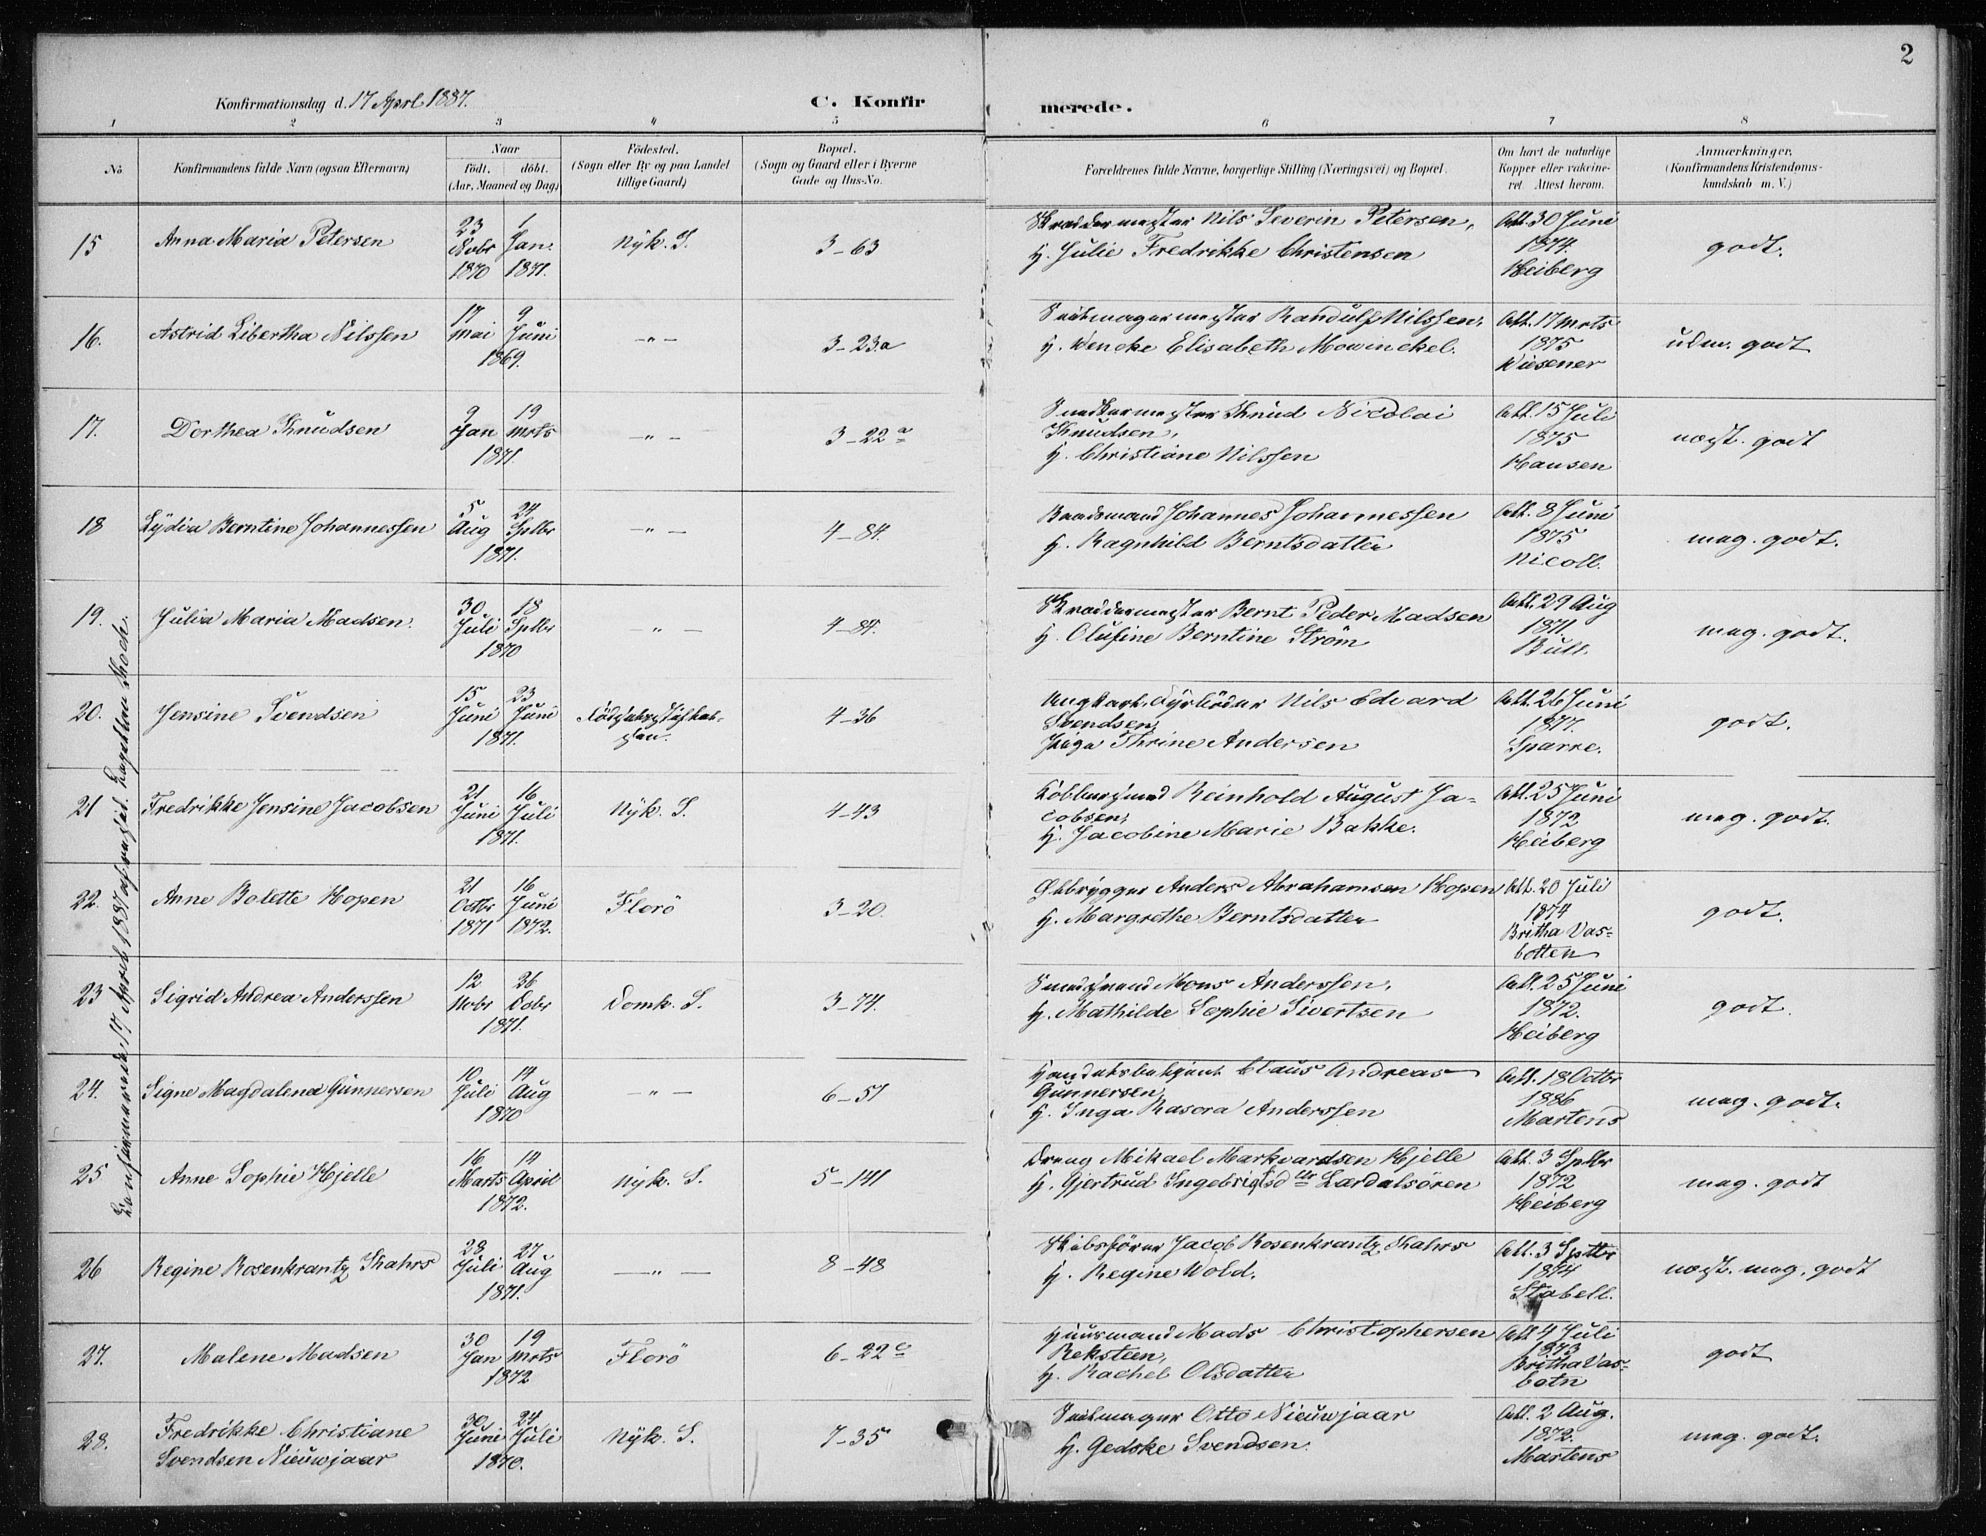 2
Konfirmationsdag d. 17 April 1887.
C. Konfirmerede.
1 2 3 4 5 6 7 8
No.
Konfirmandens fulde Navn (ogsaa Efternavn)
Naar
født. døbt.
(Aar, Maaned og Dag)
Födested.
(Sogn eller By og paa Landet
tillige Gaard)
Bopæl.
(Sogn og Gaard eller i Byerne
Gade og Hus-No.
Forældrenes fulde Navne, borgerlige Stilling (Næringsvei) og Bopæl.
Om havt de naturlige
Kopper eller vakcine-
ret. Attest herom.
Anmærkninger.
(Konfirmandens Kristendoms-
kundskab m. V.)
15 Anna Maria Petersen 23 Nobr 1870 1 Jan. 1871. Nyk. S. 3-63 Skræddermester Nils Severin Petersen,
H. Julie Fredrikke Christensen
Att. 30 Juni 1874. Heiberg godt.
16. Astrid Libertha Nilssen 17 Mai 9 Juni 1869. -"- 3-23a Seilmagermester Randulf Nilssen,
H. Wencke Elisabeth Mowinckel.
Att. 17 Mrts 1875 Wiesener udm. godt
17. Dorthea Knudsen 9 Jan 19 Mrts 1871. -"- 3-22a Snedkermester Knud Nicolai
Knudsen,
H. Christiane Nilssen
Att. 15 Juli 1875 Hansen næst. godt
18 Lydia Berntine Johannessen 5 Aug 24 Sptbr 1871. -"- 4-84. Johannes Johannessen
H. Ragnhild Berntsdatter
Att. 8 Juni 1875 Nicoll. meg. godt.
19. Julia Maria Madsen. 30 Juli 18 Sptbr 1870 -"- 4-84. Skræddermester Bernt Peder Madsen
H. Olufine Berntine Strøm
Att. 29 Aug 1871. Bull. meg. godt.
20. Jensine Svendsen 15 Juni 23 Juni 1871. Fødselsstiftelsen. 4-36 Ungkarl, Fyrbøder Nils Edvard
Svendsen,
Pige Thrine Andersen
Att. 26 Juni 1877. Sparre. godt.
21 Fredrikke Jensine Jacobsen 21 Juni 16 Juli 1871. Nyk. S. 4-43 Kobbersmed Reinhold August Ja-
cobsen,
H. Jacobine Marie Bakke.
Att. 25 Juni 1872 Heiberg meg. godt.
22. Anne Bolette Hopen 21 Octbr 1871 16 Juni 1872. Florö 3-20. Ølbrygger Anders Abrahamsen Hopen
H. Margrethe Berntsdatter
Att. 20 Juli 1874 Britha Vas-
botten godt.
23 Sigrid Andrea Anderssen 12 Nobr 26 Dcbr 1871. Domk. S. 3-74. Mons Anderssen,
H. Mathilde Sophie Sivertsen
Att. 25 Juni 1872. Heiberg godt.
24. Signe Magdalena Gunnersen 10 Juli 14 Aug 1870 -"- 6-51 Handelsbetjent Claus Andreas
Gunnersen,
H. Inga Rasora Anderssen
Att. 18 Octbr 1886 Martens meg. godt.
25 Anne Sophie Hjelle 16 Marts 14 April 1872. Nyk. S. 5-141 Dreng Mikael Markvardsen Hjelle
H. Gjertrud Ingebrigtsdtr Lærdalsören
Att. 3 Sptbr 1872 Heiberg meg. godt
26 Regine Rosenkrantz Stahrs 28 Juli 27 Aug 1871. -"- 8-48 Skibsfører Jacob Rosenkrantz Stahrs
H. Regine Wold.
Att. 3 Sptbr 1874 Stabell. næst. meg. godt
27. Malene Madsen 30 Jan 19 Mrts 1872 Florö 6-22c Huusmand Mads Christophersen
Reksteen,
H. Rachel Olsdatter
Att 4 Juli 1873 Britha Vas-
botn godt
28. Fredrikke Christiane
Svendsen Nieuwjaar 30 Juni 24 Juli 1870. Nyk. S. 7-35 Seilmager Otto Nieuwjaar
H. Gedske Svendsen.
Att. 2 Aug. 1872. Martens meg. godt.
Konfirmerede 17 April 1887 af resid. Kapellan Koch.